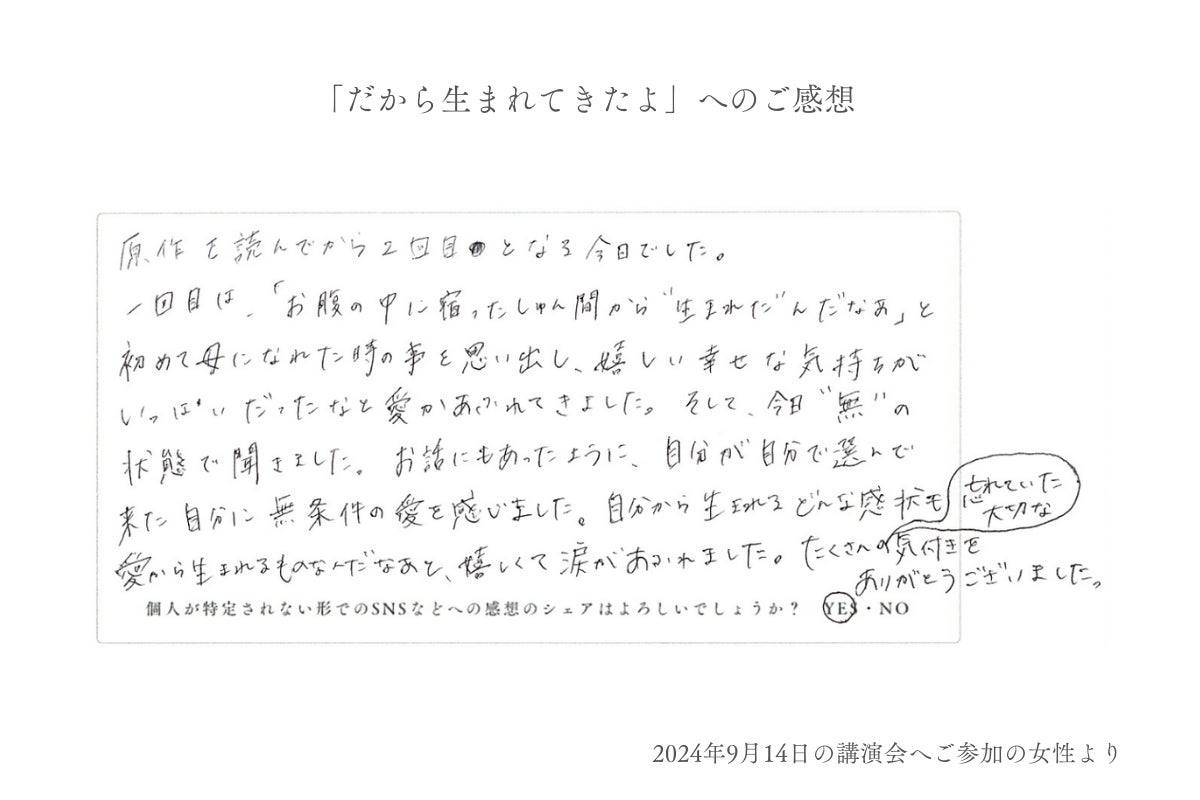 「だから生まれてきたよ」へのご感想
原作を読んでから2回目となる今日でした。
一回目は、「お腹の中に宿ったしゅん間から"生まれだ"んだなぁ」と
初めて母になれた時の事を思い出し、嬉しい幸せな気持ちが
いっぱいだったなと愛があふれてきました。そして、今日"無"の
状態で聞きました。お話にもあったように、自分が自分で選んで
来た自分に無条件の愛を感じました。自分から生まれるどんな感状も
愛から生まれるものなんだなあと、嬉しくて涙があふれました。たくさんの
忘れていた
大切な
気付きを
ありがとうございました。
個人が特定されない形でのSNSなどへの感想のシェアはよろしいでしょうか? YES・NO
2024年9月14日の講演会へご参加の女性より